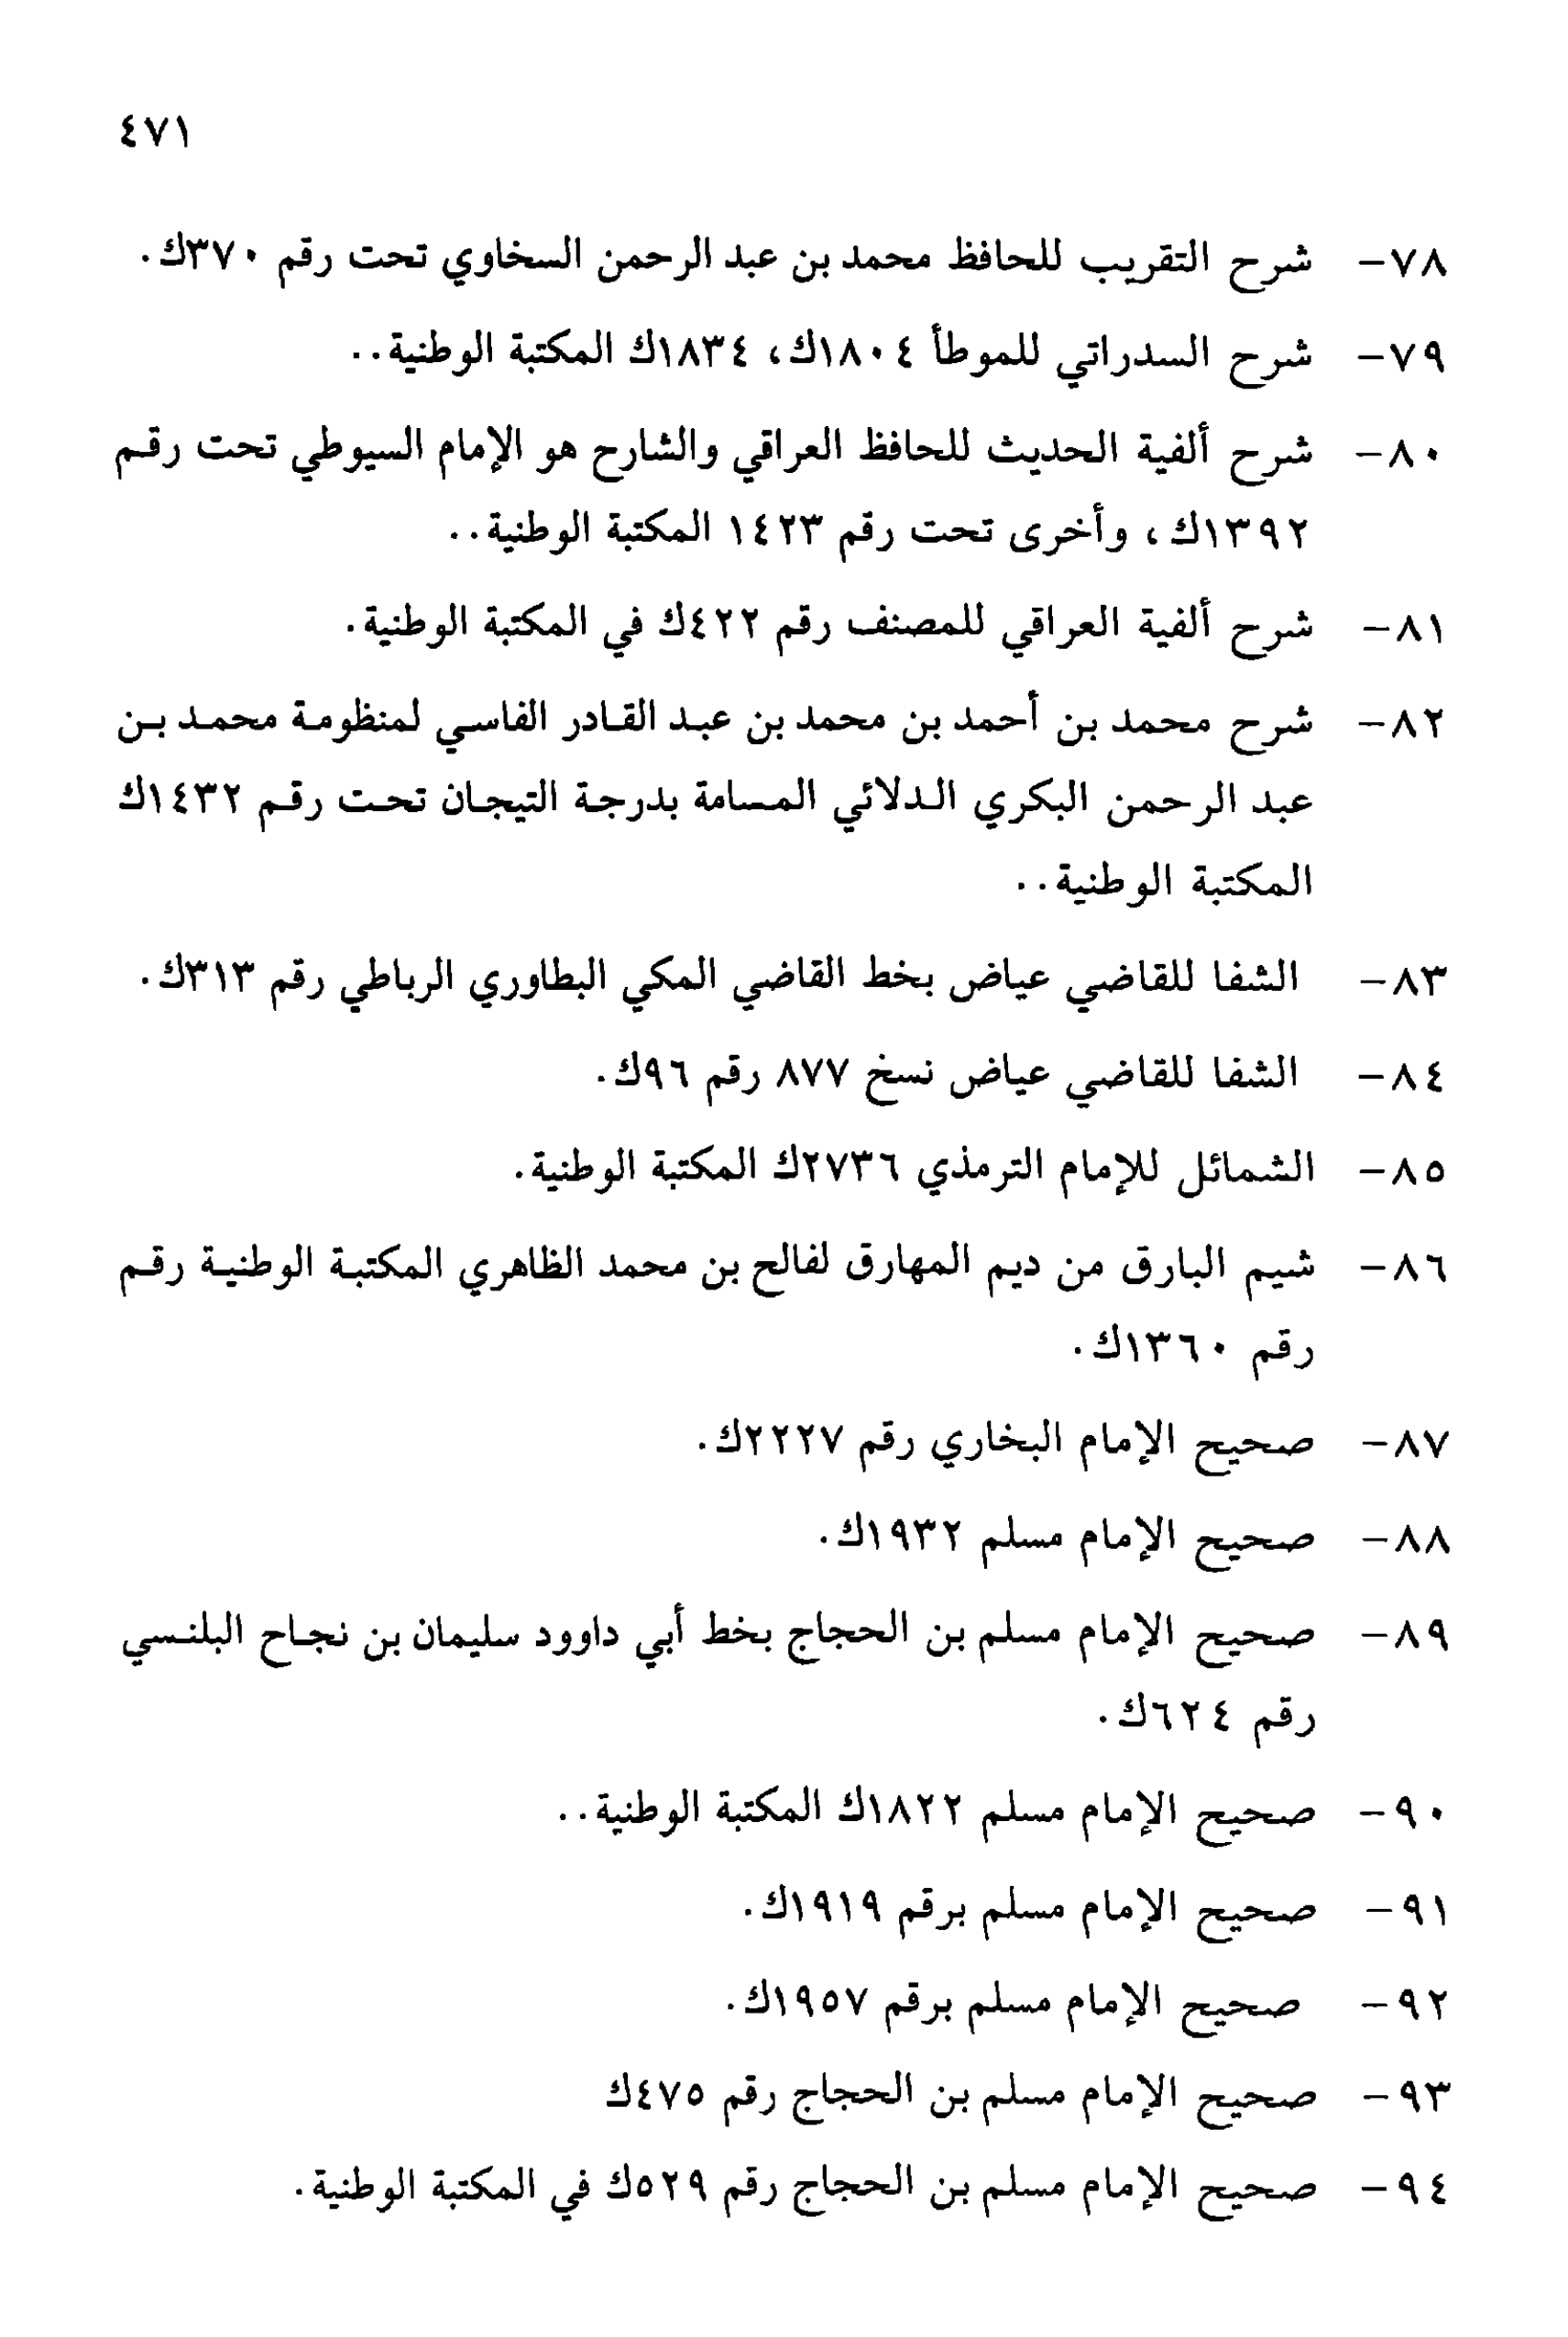 ٤٧١
٧٨- شرح التقريب للحافظ محمد بن عبد الرحمن السخاوي تحت رقم ٣٧٠ك.
٧٩- شرح السدراتي للموطأ ١٨٠٤ك، ١٨٣٤ك المكتبة الوطنية..
٨٠- شرح ألفية الحديث للحافظ العراقي والشارح هو الإمام السيوطي تحت رقم
١٣٩٢ك، وأخرى تحت رقم ١٤٢٣ المكتبة الوطنية..
٨١- شرح ألفية العراقي للمصنف رقم ٤٢٢ك في المكتبة الوطنية.
٨٢- شرح محمد بن أحمد بن محمد بن عبد القادر الفاسي لمنظومة محمد بن
عبد الرحمن البكري الدلائي المسامة بدرجة التيجان تحت رقم ١٤٣٢ك
المكتبة الوطنية..
٨٣- الشفا للقاضي عياض بخط القاضي المكي البطاوري الرباطي رقم ٣١٣ك.
٨٤- الشفا للقاضي عياض نسخ ٨٧٧ رقم ٩٦ك.
٨٥- الشمائل للإمام الترمذي ٢٧٣٦ك المكتبة الوطنية.
٨٦- شيم البارق من ديم المهارق لفالح بن محمد الظاهري المكتبة الوطنية رقم
رقم ١٣٦٠ك.
٨٧- صحيح الإمام البخاري رقم ٢٢٢٧ك.
٨٨- صحيح الإمام مسلم ١٩٣٢ك.
٨٩- صحيح الإمام مسلم بن الحجاج بخط أبي داوود سليمان بن نجاح البلنسي
رقم ٦٢٤ك.
٩٠- صحيح الإمام مسلم ١٨٢٢ك المكتبة الوطنية..
٩١- صحيح الإمام مسلم برقم ١٩١٩ك.
٩٢- صحيح الإمام مسلم برقم ١٩٥٧ك.
٩٣- صحيح الإمام مسلم بن الحجاج رقم ٤٧٥ك
٩٤- صحيح الإمام مسلم بن الحجاج رقم ٥٢٩ك في المكتبة الوطنية.